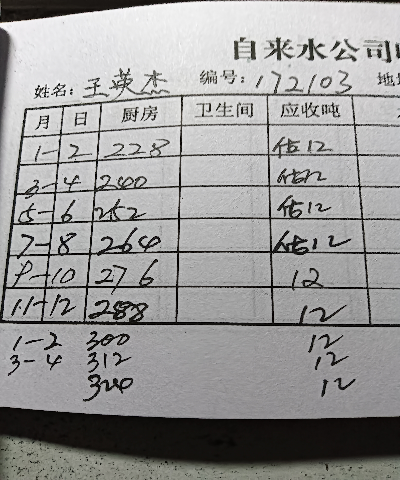 自来水公司
姓名：王英杰 编号：172103 地
月 日 厨房 卫生间 应收吨
1-2 228 估12
3-4 240 估12
5-6 252 估12
7-8 264 估12
9-10 276 12
11-12 288 12
1-2 300 12
3-4 312 12
324 12